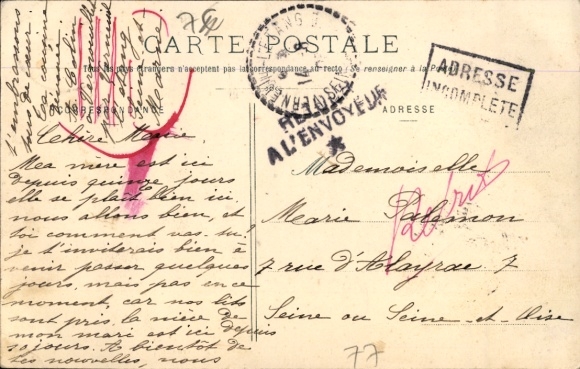 CARTE POSTALE
Tous les pays étrangers n'acceptent pas la correspondance au recto (Se renseigner à la Poste)
CORRESPONDANCE
ADRESSE
ADRESSE
INCOMPLETE
RETOUR
A L'ENVOYEUR
Chère Marie
Ma mère est ici
depuis quinze jours
elle se plait bien ici
nous allons bien, et
toi comment vas-tu?
je t'inviterais bien à
venir passer quelques
jours, mais pas en ce
moment, car nos lits
sont pris, la nièce de
mon mari est ici depuis
20 jours. A bientôt de
tes nouvelles, nous
t'embrassons
tous de cœur
ta cousine
Mademoiselle
Marie Salemon
7 rue d'Alayrac 7
Seine ou Seine-et-Oise
77